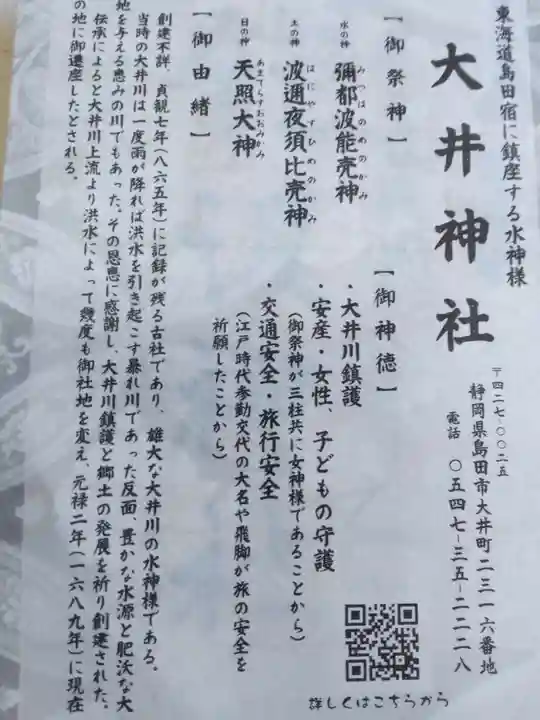 東海道島田宿に鎮座する水神様
大井神社
〒四二七-〇〇二五
静岡県島田市大井町二三一六番地
電話 〇五四七-三五-二二二八
【御祭神】
水の神 彌都波能売神 みづはのめのかみ
土の神 波邇夜須比売神 はにやすひめのかみ
日の神 天照大神 あまてらすおおみかみ
【御神徳】
・大井川鎮護
・安産・女性、子どもの守護
(御祭神が三柱共に女神様であることから)
・交通安全・旅行安全
(江戸時代参勤交代の大名や飛脚が旅の安全を
祈願したことから)
【御由緒】
創建不詳、貞観七年(八六五年)に記録が残る古社であり、雄大な大井川の水神様である。
当時の大井川は一度雨が降れば洪水を引き起こす暴れ川であった反面、豊かな水源と肥沃な大
地を与える恵みの川でもあった。その恩恵に感謝し、大井川鎮護と郷土の発展を祈り創建された。
伝承によると大井川上流より洪水によって幾度も御社地を変え、元禄二年(一六八九年)に現在
の地に御遷座したとされる。
詳しくはこちらから